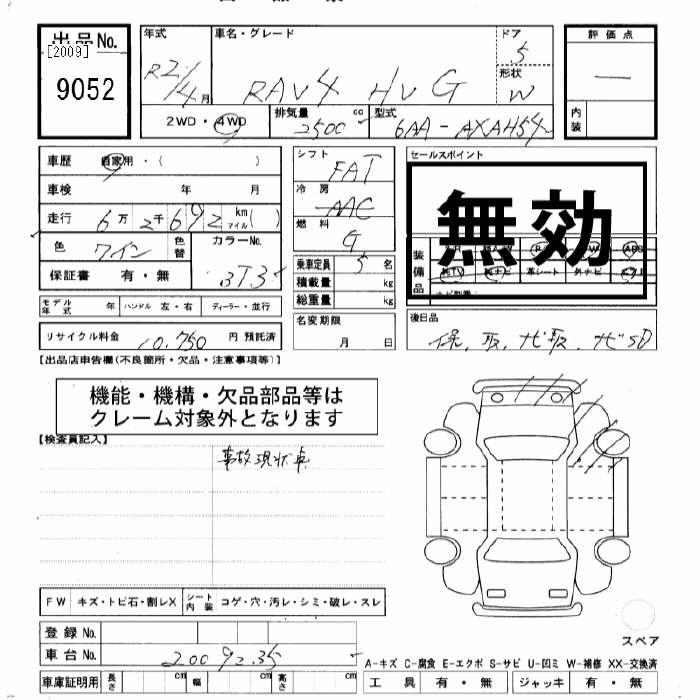 出品No.
[2009]
9052
年式
R2/4月
車名・グレード
RAV4 HV G
ドア
5
形状
W
評価点
—
内装
2WD・4WD
排気量
2500 cc
型式
6AA-AXAH54
車歴 自家用・( )
車検 年 月
走行 6万2千692 km マイル( )
色 ワイン 色替 カラーNo.
3T3
保証書 有・無
モデル年式 年 ハンドル 左・右 ディーラー・並行
リサイクル料金 10,750 円 預託済
シフト
FAT
冷房
AAC
燃料
G
乗車定員 5 名
積載量 kg
総重量 kg
名変期限
月 日
セールスポイント
無効
装備品
革シート・外ナビ
後日品
保、取、ナビ取、ナビSD
【出品店申告欄(不良箇所・欠品・注意事項等)】
機能・機構・欠品部品等は
クレーム対象外となります
【検査員記入】
事故現状車
FW キズ・トビ石・割レX シート内装 コゲ・穴・汚レ・シミ・破レ・スレ
登録No.
車台No. 2009235
車庫証明用 長さ cm 幅 cm 高さ cm
スペア
A-キズ C-腐食 E-エクボ S-サビ U-凹ミ W-補修 XX-交換済
工具 有・無 ジャッキ 有・無